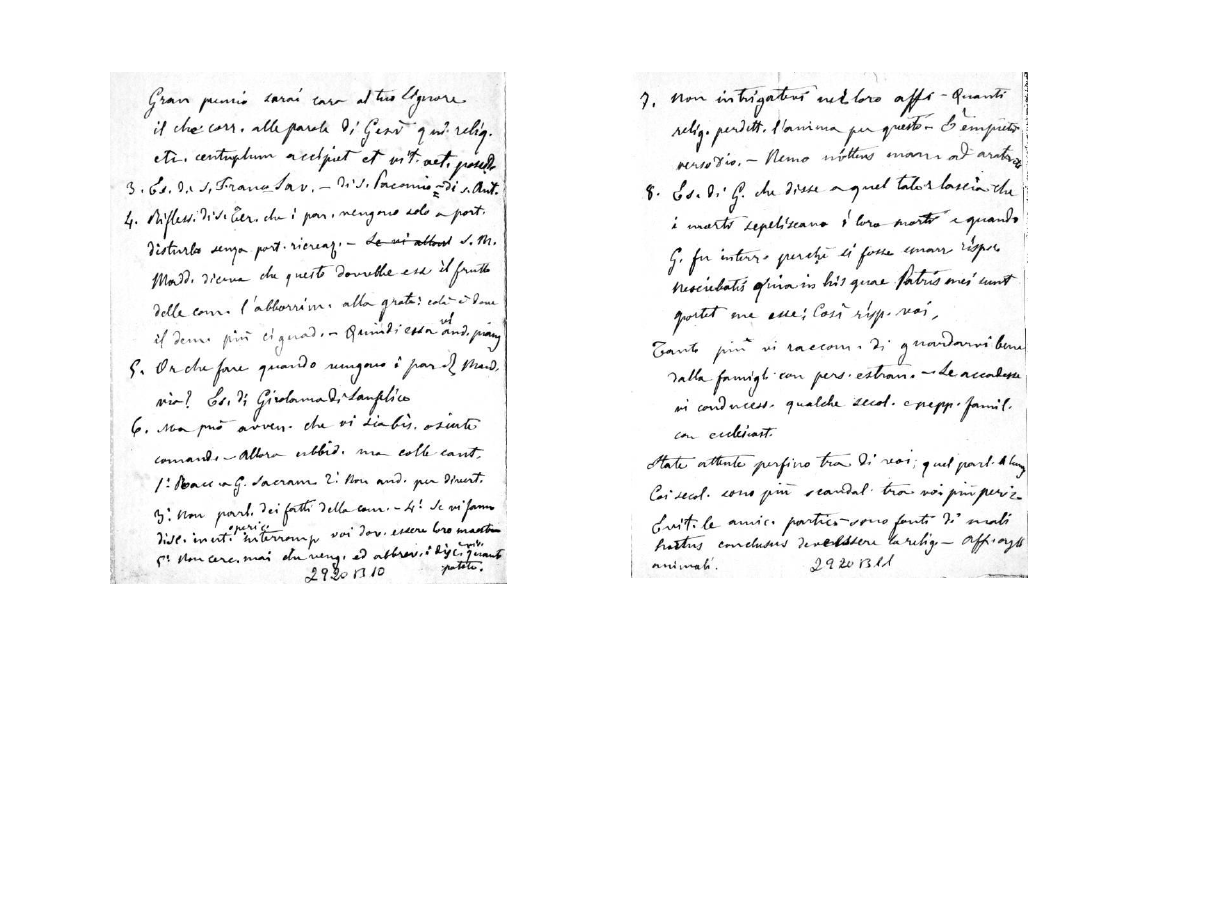 Gran premio sarai cara al tuo Signore
il che corr. alle parole di Gesù qui relig.
etc. centuplum accipiet et vit. aet. possid.
3. Es. di s. Franc. Sav. - di s. Pacomio - di s. Ant.
4. Rifless. di s. Ter. che i par. vengono solo a port.
disturbo senza port. ricreaz. - s. M.
Madd. diceva che questo dovrebbe ess. il frutto
delle com. l'abborrim. alla grata; colà è dove
il dem. più ci guad. - Quindi essa vi and. piang
5. Or che fare quando vengono i par. Mand.
via? Es. di Girolama di Sanfelice
6. Ma può avven. che vi sia bis. o siate
comand. - Allora ubbid. ma colle caut.
1° Racc. a G. Sacram. 2° Non and. per divert.
3° Non parl. dei fatti della com. - 4° Se vi fanno
disc. inutil. o peric. interromp. voi dov. essere loro maestre
5° Non cerc. mai che veng. ed abbrev. i disc. quanto
potete.
2920 B 10
7. Non intrigatevi nei loro aff. - Quanti
relig. perdett. l'anima per questo - È empietà
verso Dio. - Nemo mittens manum ad aratrum
8. Es. di G. che disse a quel tale: lascia che
i morti sepeliscano i loro morti e quando
G. fu interr. perchè si fosse smarr. rispose
Nesciebatis quia in his quae Patris mei sunt
oportet me esse; Così risp. voi.
Tanto più vi raccom. di guardarvi bene
dalla famigl. con pers. estran. - Se accadesse
vi conducess. qualche secol. e pegg. famil.
con ecclesiast.
State attente perfino tra di voi; quel parl. a lungo
Coi secol. sono più scandal. tra voi più peric.
Evit. le amic. partic. - sono fonti di mali
hortus conclusus deve essere la relig. - Aff. agli
animali.
2920 B 11